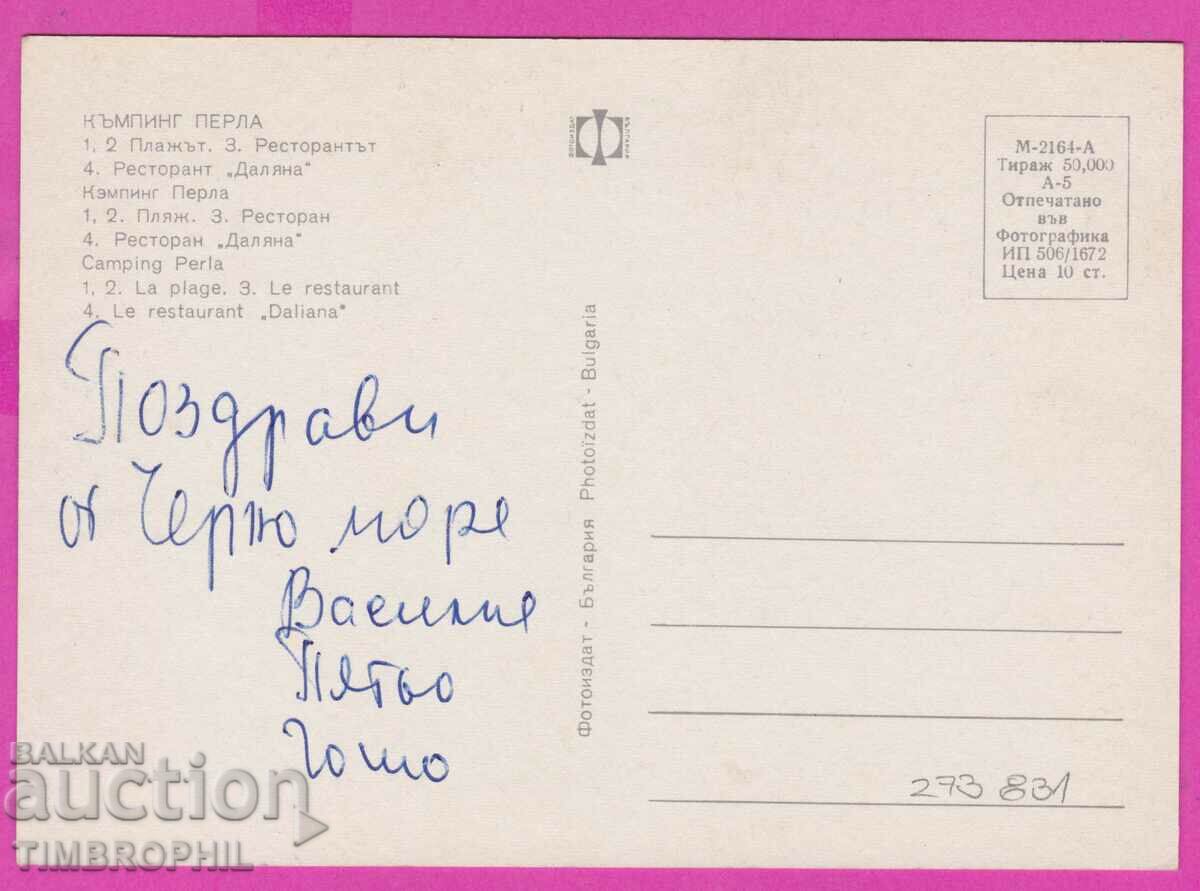 КЪМПИНГ ПЕРЛА
1, 2 Плажът. 3. Ресторантът
4. Ресторант „Даляна“
Кэмпинг Перла
1, 2. Пляж. 3. Ресторан
4. Ресторан „Даляна“
Camping Perla
1, 2. La plage. 3. Le restaurant
4. Le restaurant „Daliana“
Поздрави
от Черно море
Василие
Пятьо
Гошо
ФОТОИЗДАТ
БЪЛГАРИЯ
Фотоиздат - България Photoïzdat - Bulgaria
М-2164-А
Тираж 50,000
А-5
Отпечатано
във
Фотографика
ИП 506/1672
Цена 10 ст.
273 831
BALKAN
auction
TIMBROPHIL